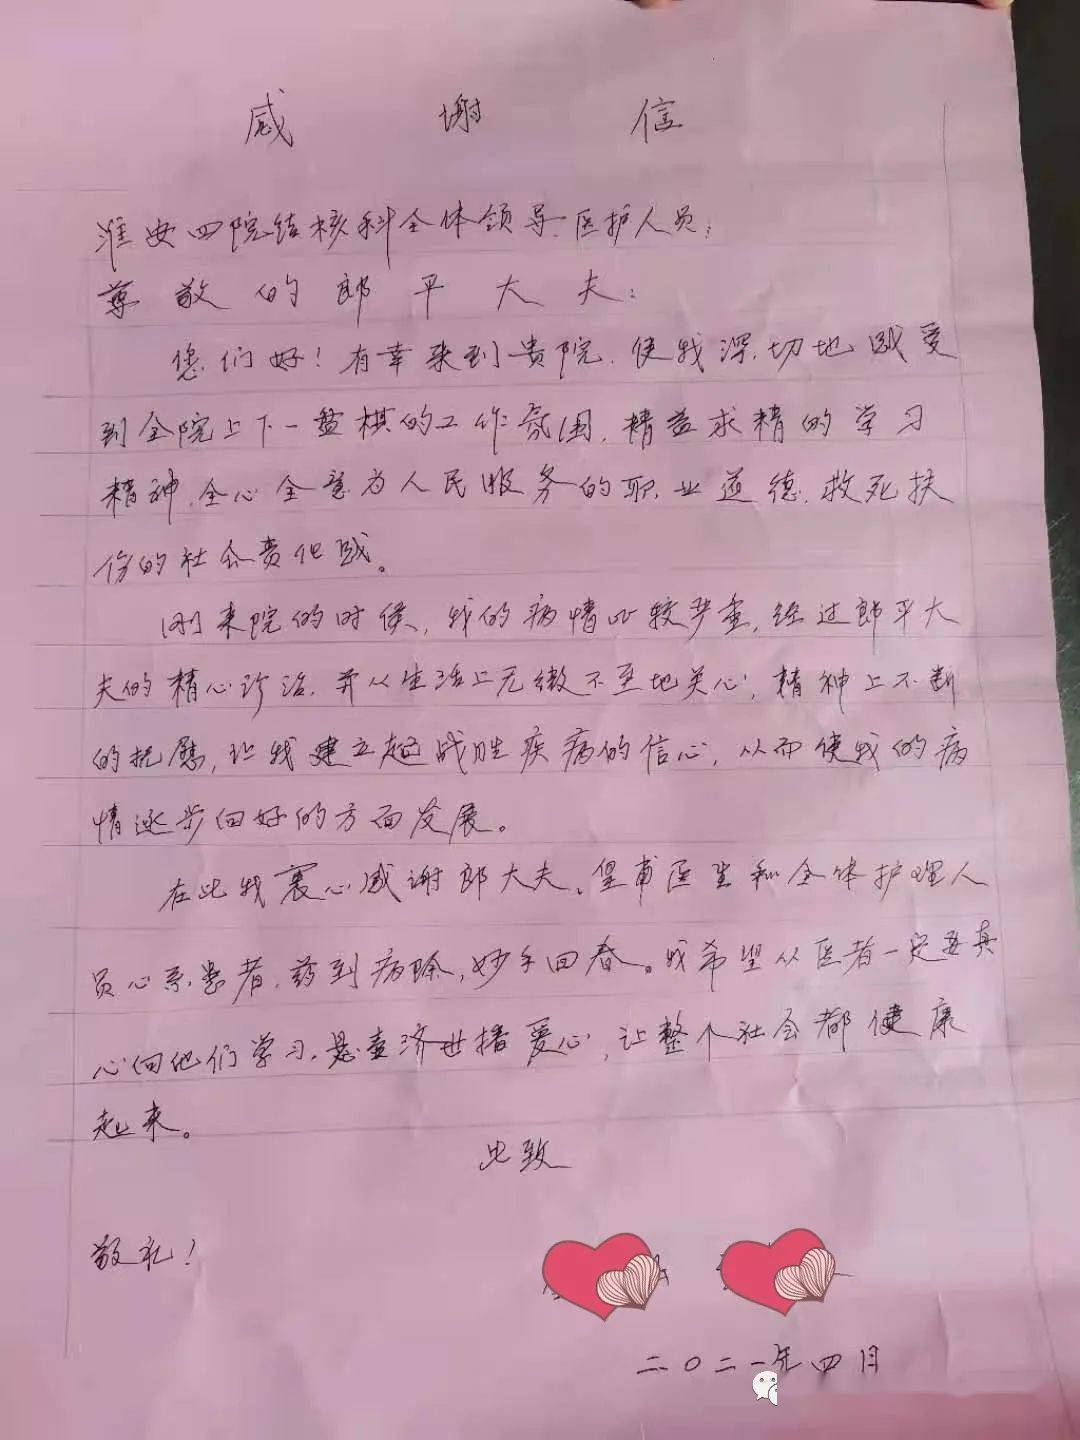 感谢信
淮安四院结核科全体领导、医护人员:
尊敬的郎平大夫:
您们好!有幸来到贵院,使我深切地感受
到全院上下一盘棋的工作氛围,精益求精的学习
精神,全心全意为人民服务的职业道德,救死扶
伤的社会责任感。
刚来院的时候,我的病情比较严重,经过郎平大
夫的精心诊治,并从生活上无微不至地关心,精神上不断
的抚慰,让我建立起战胜疾病的信心,从而使我的病
情逐步向好的方面发展。
在此我衷心感谢郎大夫、皇甫医生和全体护理人
员心系患者,药到病除,妙手回春。我希望从医者一定要真
心向他们学习,悬壶济世播爱心,让整个社会都健康
起来。
此致
敬礼!
二〇二一年四月